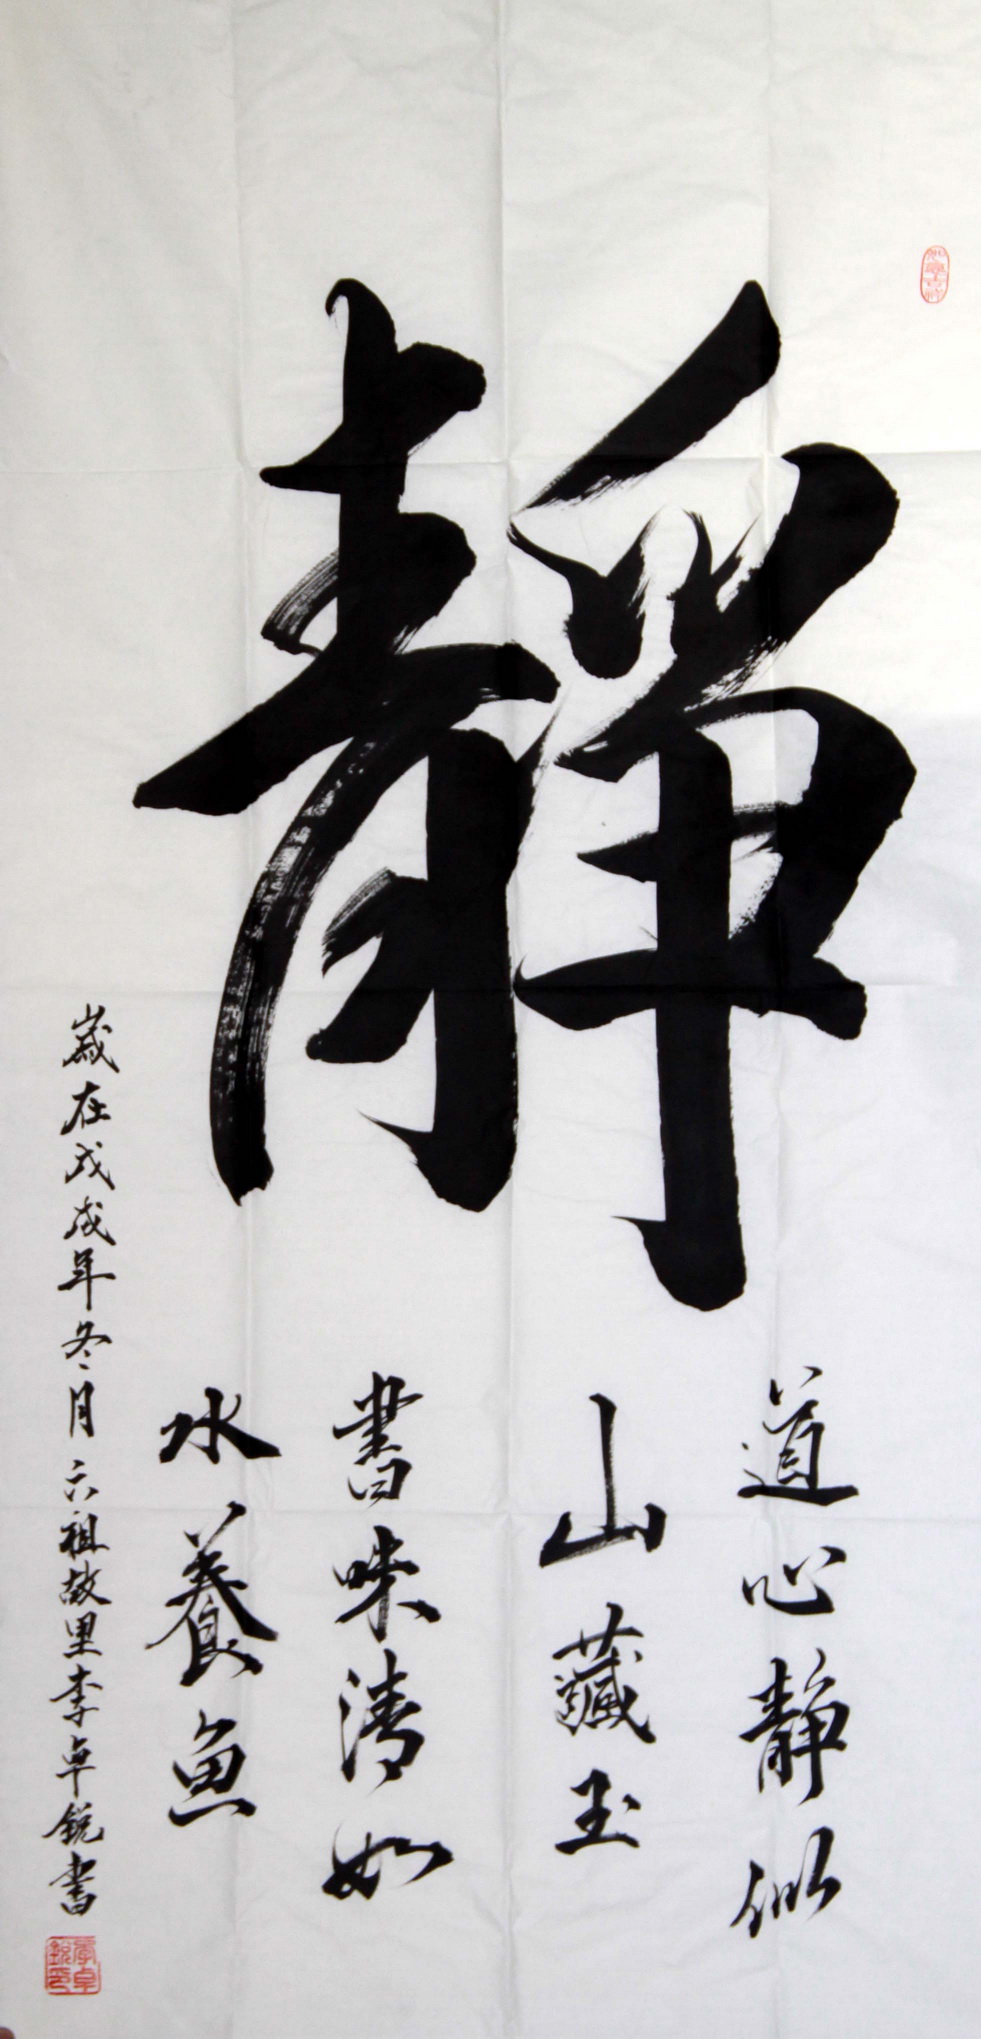 靜
道心靜似
山藏玉
書味清如
水養魚
歲在戊戌年冬月六祖故里李卓銳書
李卓銳印